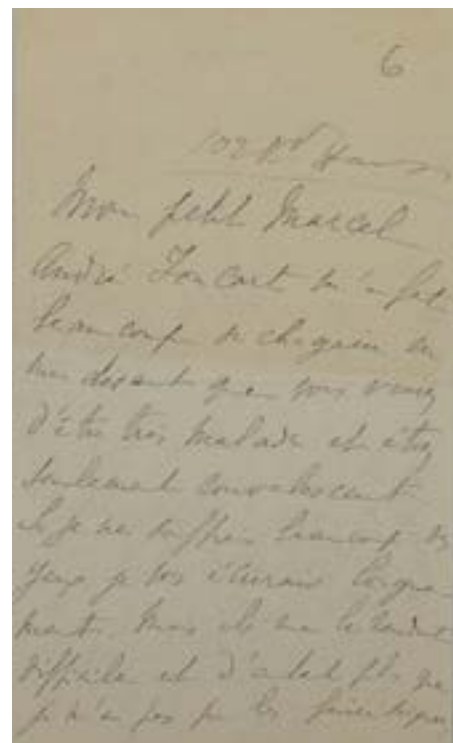 6
102 Bd Haussm
Mon petit Marcel
André Foucart m'a fait
beaucoup de chagrin en
me disant que vous venez
d'être très malade et étiez
seulement convalescent
Si je ne souffrais beaucoup des
yeux je vous écrirais longue
ment. Mais ils me le rendent
difficile et d'autant plus que
je n'ai pas pu les